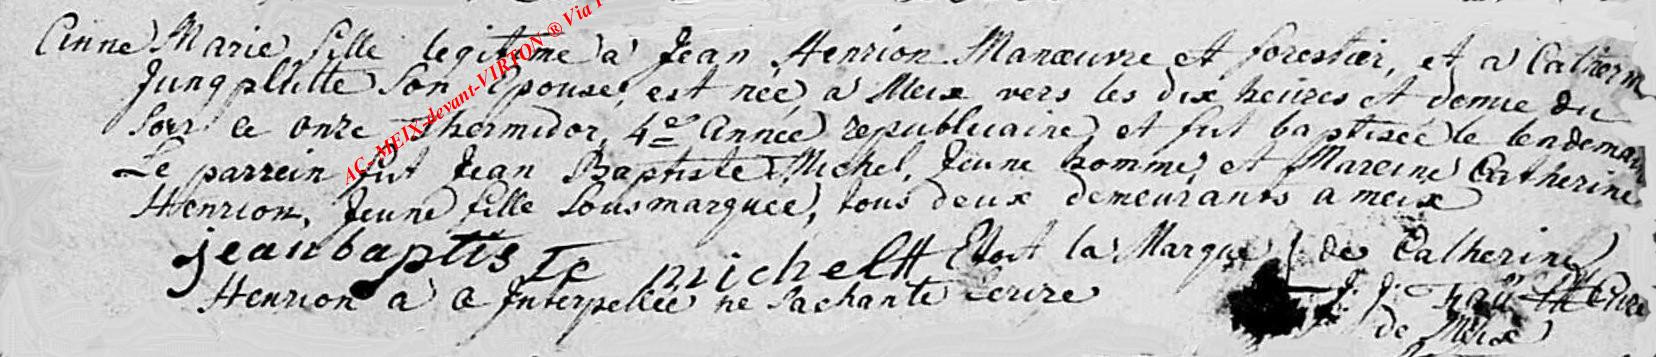 Anne Marie fille legitime à Jean Henrion Manœuvre et forestier, et a Catherin
Jungplutte son Epouse, est neé, a Meix vers les dix heures et demie du
soir ce onze Thermidor, 4e Année republicaine, et fut baptiseé le lendemain
Le parrein fut Jean Baptiste Michel, Jeune homme, et Mareine Catherine
Henrion, Jeune fille sousmarquee, tous deux demeurants a meix
jean baptis te michel Et voit la Marque de Catherine
Henrion a ce Interpellée ne sachante Ecrire
J: J: Curé
de Meix
AC-MEIX-devant-VIRTON ® Via